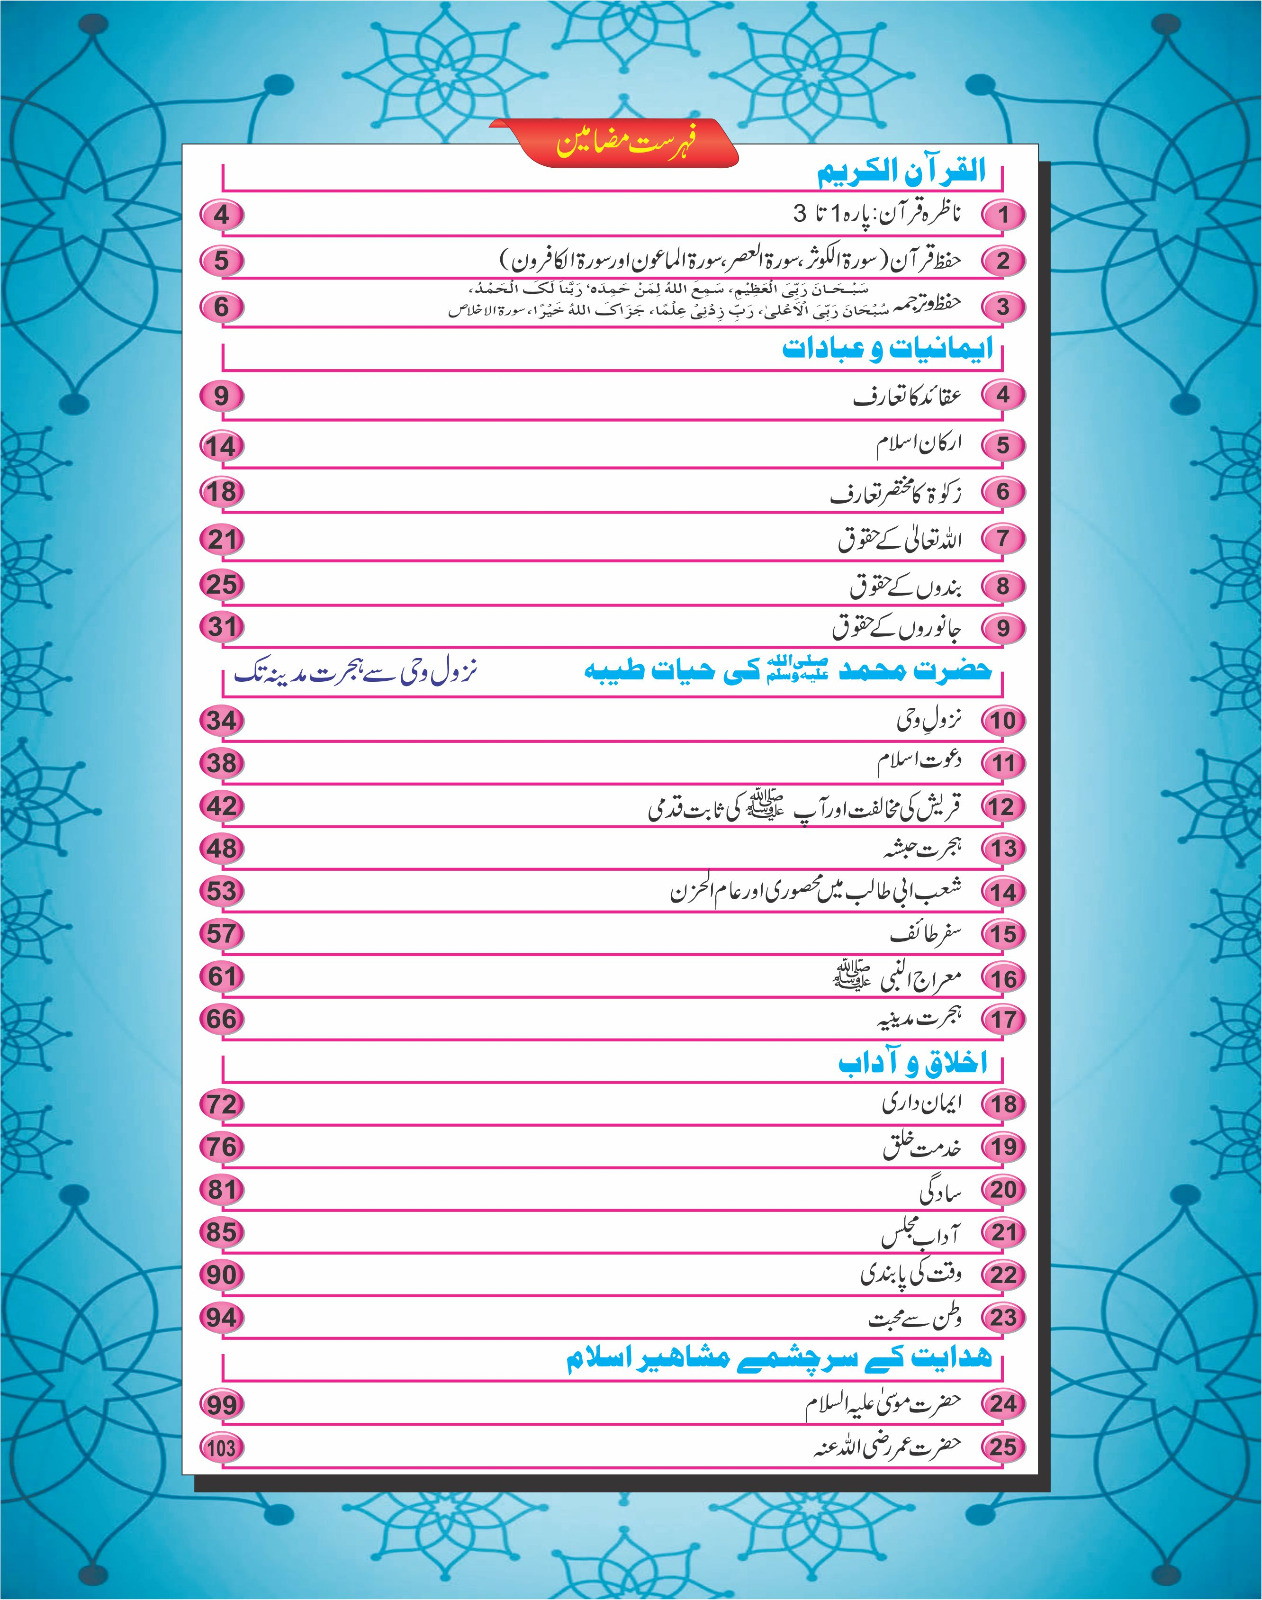 فہرست مضامین
القرآن الکریم
1 ناظرہ قرآن: پارہ 1 تا 3 4
2 حفظ قرآن (سورۃ الکوثر، سورۃ العصر، سورۃ الماعون اور سورۃ الکافرون) 5
3 حفظ و ترجمہ سُبْحَانَ رَبِّیَ الْعَظِیْمِ، سَمِعَ اللهُ لِمَنْ حَمِدَہٗ، رَبَّنَا لَکَ الْحَمْدُ،
سُبْحَانَ رَبِّیَ الْاَعْلٰی، رَبِّ زِدْنِیْ عِلْمًا، جَزَاکَ اللهُ خَیْرًا، سورۃ الاخلاص 6
ایمانیات و عبادات
4 عقائد کا تعارف 9
5 ارکان اسلام 14
6 زکوٰۃ کا مختصر تعارف 18
7 اللہ تعالیٰ کے حقوق 21
8 بندوں کے حقوق 25
9 جانوروں کے حقوق 31
حضرت محمد ﷺ کی حیات طیبہ نزول وحی سے ہجرت مدینہ تک
10 نزولِ وحی 34
11 دعوت اسلام 38
12 قریش کی مخالفت اور آپ ﷺ کی ثابت قدمی 42
13 ہجرت حبشہ 48
14 شعب ابی طالب میں محصوری اور عام الحزن 53
15 سفر طائف 57
16 معراج النبی ﷺ 61
17 ہجرت مدینیہ 66
اخلاق و آداب
18 ایمان داری 72
19 خدمت خلق 76
20 سادگی 81
21 آداب مجلس 85
22 وقت کی پابندی 90
23 وطن سے محبت 94
ھدایت کے سرچشمے مشاھیر اسلام
24 حضرت موسیٰ علیہ السلام 99
25 حضرت عمر رضی اللہ عنہ 103